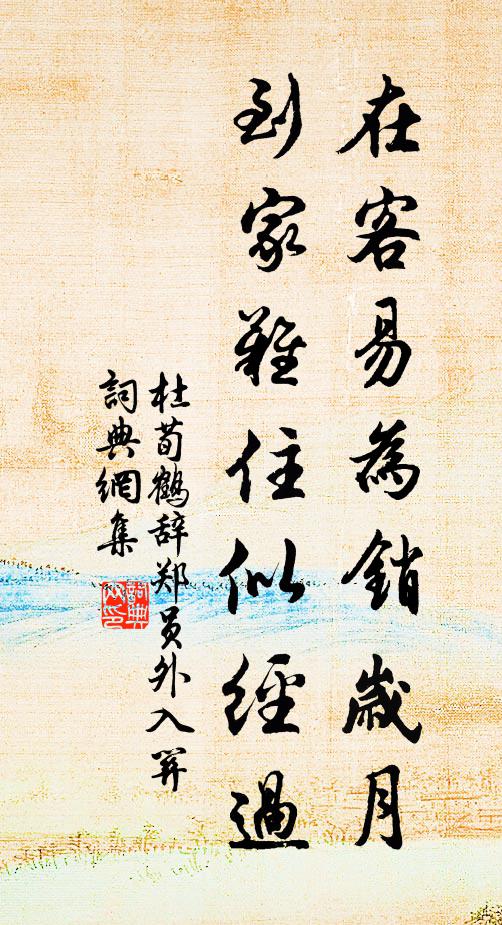 在客易為銷歲月
到家難住似經過
杜荀鶴辞郑员外入関
詞典網集